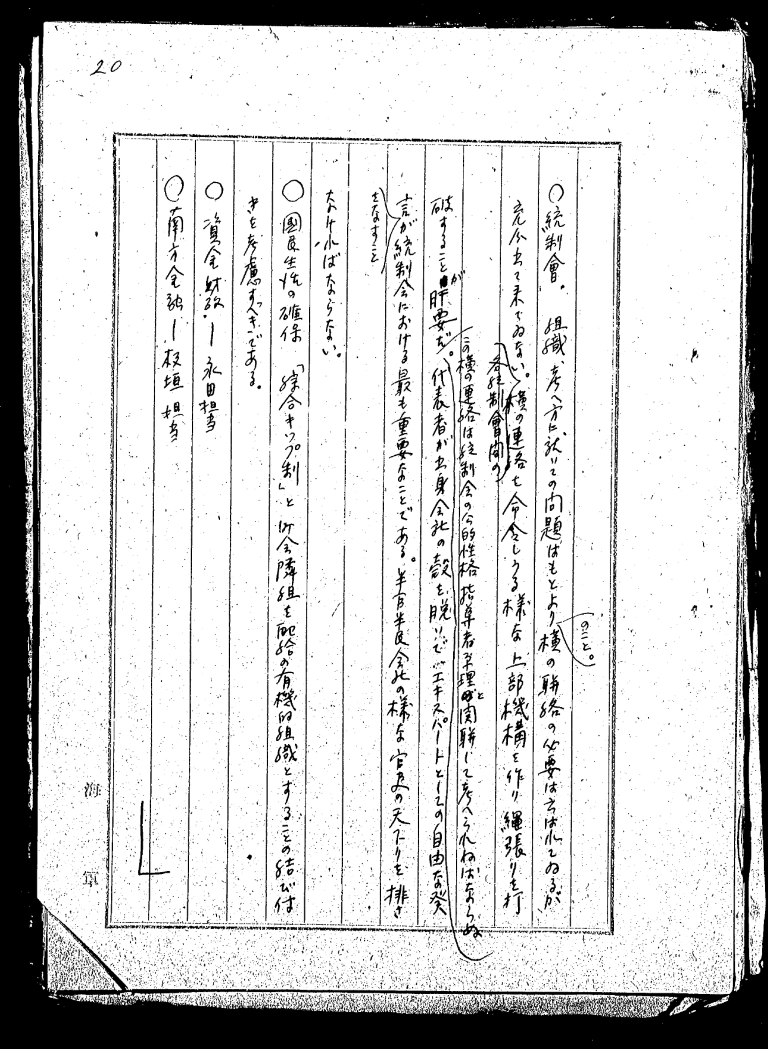 20
○統制會。組織、考へ方に就いての問題はもとより横の聯絡の必要は云はれてゐるが
のこと。
充分出て来てゐない。横の連絡を命令しうる様な上部機構を作り縄張りを打
各統制會間の
この横の連絡は統制会の公的性格指導者原理と関聯して考へられねばならぬ
破することが肝要だ。代表者が出身会社の殻を脱いでエキスパートとしての自由な発
言が統制会における最も重要なことである。半官半民会社の様な官吏の天下りを排さ
をなすこと
なければならない。
○國民生活の確保「綜合キップ制」と町会隣組を配給の有機的組織とすることの結び付
きを考慮すべきである。
○資金財政ー永田担当
○南方金融ー板垣担当
海軍